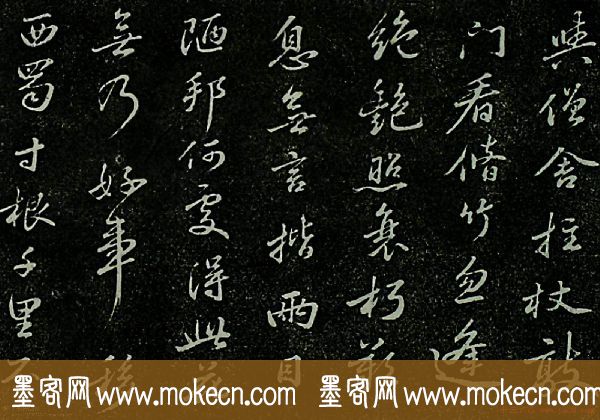 與僧舍拄杖敲
門看脩竹忽逢
絕艷照衰朽歎
息無言揩兩目
陋邦何處得此花
無乃好事移
西蜀寸根千里不
墨客网 www.mokecn.com
墨客网 www.mokecn.com